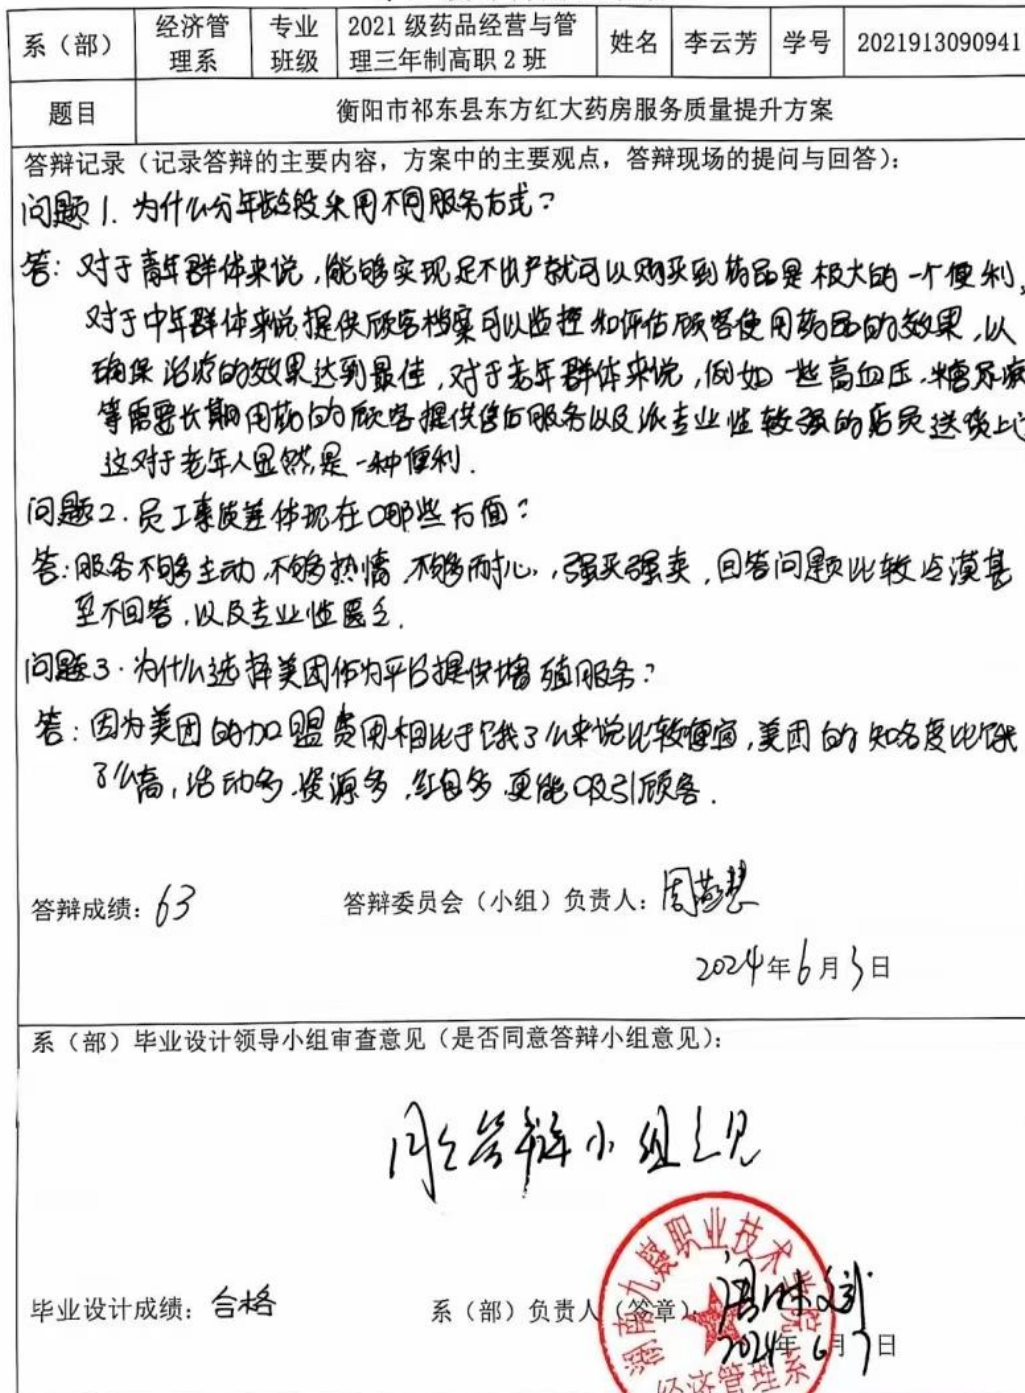 系（部） 经济管理系 专业班级 2021 级药品经营与管理三年制高职 2 班 姓名 李云芳 学号 2021913090941
题目 衡阳市祁东县东方红大药房服务质量提升方案
答辩记录（记录答辩的主要内容，方案中的主要观点，答辩现场的提问与回答）：
问题1. 为什么分年龄段采用不同服务方式？
答：对于青年群体来说，能够实现足不出户就可以购买到药品是极大的一个便利，
对于中年群体来说提供顾客档案可以监控和评估顾客使用药品的效果，以
确保治疗的效果达到最佳，对于老年群体来说，例如一些高血压，糖尿病
等需要长期用药的顾客提供售后服务以及派专业性较强的店员送货上
这对于老年人显然是一种便利.
问题2. 员工素质差体现在哪些方面？
答：服务不够主动，不够热情，不够耐心，强买强卖，回答问题比较冷漠甚
至不回答，以及专业性匮乏.
问题3. 为什么选择美团作为平台提供增殖服务？
答：因为美团的加盟费用相比于饿了么来说比较便宜，美团的知名度比饿
了么高，活动多，资源多，红包多，更能吸引顾客.
答辩成绩：63 答辩委员会（小组）负责人：周
2024年6月3日
系（部）毕业设计领导小组审查意见（是否同意答辩小组意见）：
同意答辩小组意见
毕业设计成绩：合格 系（部）负责人（签章）：
2024年6月7日
湖南九嶷职业技术学院
经济管理系